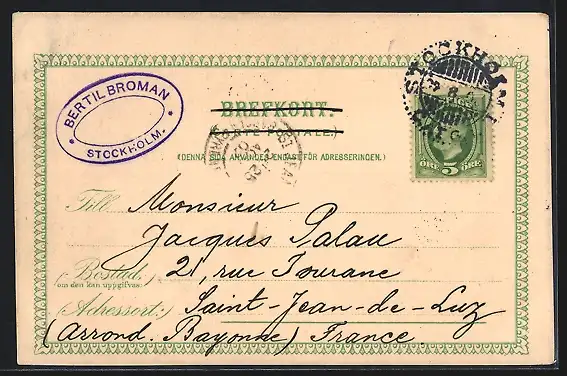 BERTIL BROMAN
STOCKHOLM.
BREFKORT.
(CARTE POSTALE.)
(DENNA SIDA ANVÄNDES ENDAST FÖR ADRESSERINGEN.)
STOCKHOLM
ÖRE 5 ÖRE
Till Monsieur
Jacques Palau
Bostad: 21, rue Tourane
(om den kan uppgifvas)
(Adressort:) Saint-Jean-de-Luz
(Arrond. Bayonne) France